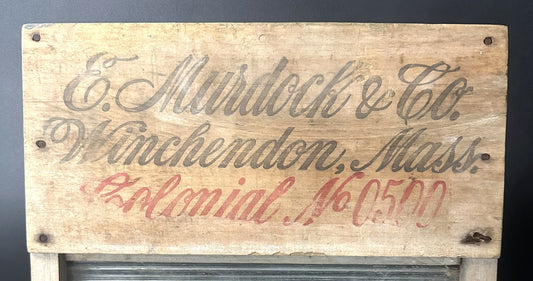 E. Murdock & Co.
Winchendon, Mass.
Colonial No 0500